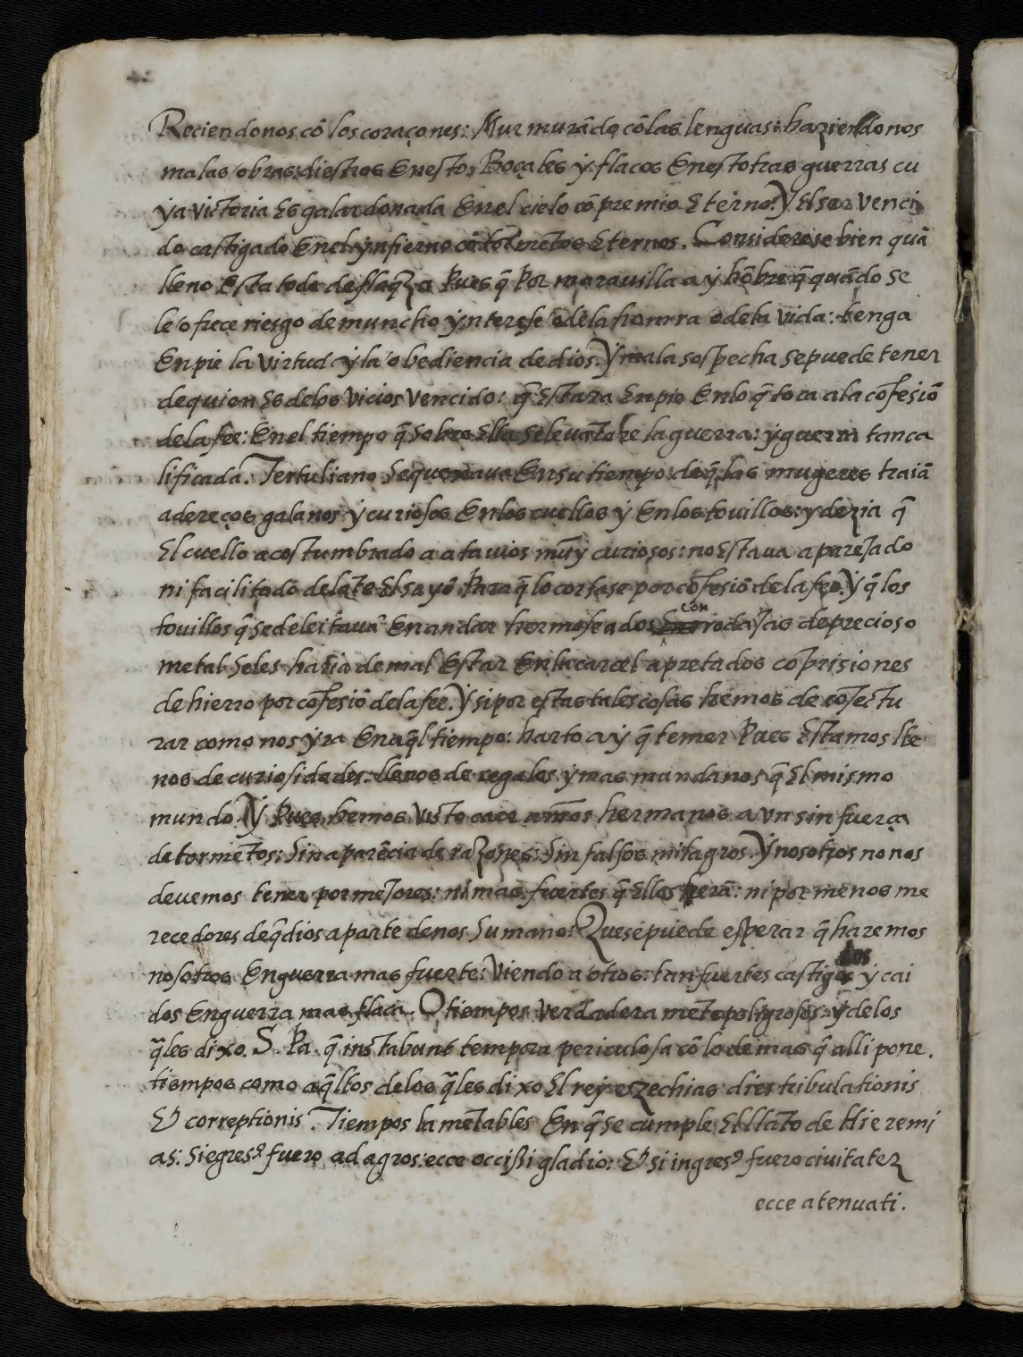 Reciendonos cō los coraçones: Murmurādo cō las lenguas: haziendonos
malas obras: diestros En esto; Boçales y flacos En estotras guerras cu
ya victoria Es galardonada En el cielo cō premio Eterno. Y El ser venci
do castigado En el ynfierno cō tormētos Eternos. Considerese bien quā
lleno Esta todo de flaq̄za Pues q̄ Por marauilla a y hōbre q̄ quādo se
le ofrece riesgo de muncho ynterese o de la honrra o de la vida: tenga
En pie la virtud y la obediencia de dios. Y mala sospecha se puede tener
de quien Es de los vicios vencido: q̄ Estara En pie En lo q̄ toca a la cōfesiō
de la fee: En el tiempo q̄ sobre Ella se leuātare la guerra: y guerra tan ca
lificada. Tertuliano se quexaua En su tiempo: de q̄ las mugeres traiā
adereços galanos y curiosos En los cuellos y En los touillos: y dezia q̄
El cuello acostumbrado a atauios muy curiosos: no Estaua aparejado
ni facilitado delāte El sayō Para q̄ lo cortase por cōfesiō de la fee. Y q̄ los
touillos q̄ se deleitauā En andar hermoseados con rodajas de precioso
metal se les haria de mal Estar En la carcel apretados cō prisiones
de hierro por cōfesiō de la fee. Y si por estas tales cosas hemos de cōjectu
rar como nos yra En aq̄l tiempo: harto ay q̄ temer Pues Estamos lle
nos de curiosidades: llenos de regalos y mas mundanos q̄ El mismo
mundo. Y Pues hemos visto caer nr̄os hermanos aun sin fuerça
de tormētos: Sin aparēcia de razones: Sin falsos milagros. Y nosotros no nos
deuemos tener por mejores: ni mas fuertes q̄ Ellos erā: ni por menos me
recedores de q̄ dios aparte de nos Su mano. Que se puede esperar q̄ haremos
nosotros En guerra mas fuerte: viendo a otros: tan fuertes castigados y cai
dos En guerra mas flaca. O tiempos verdaderamēte peligrosos: y de los
q̄les dixo. S. Pa. q̄ instabunt tempora periculosa cō lo demas q̄ alli pone.
tiempos como aq̄llos de los q̄les dixo El rey ezechias dies tribulationis
Et correptionis. Tiempos lamētables En q̄ se cumple El llāto de Hieremi
as: Si egres⁹ fuero ad agros: ecce occißi gladio: Et si ingres⁹ fuero ciuitatez
ecce atenuati.